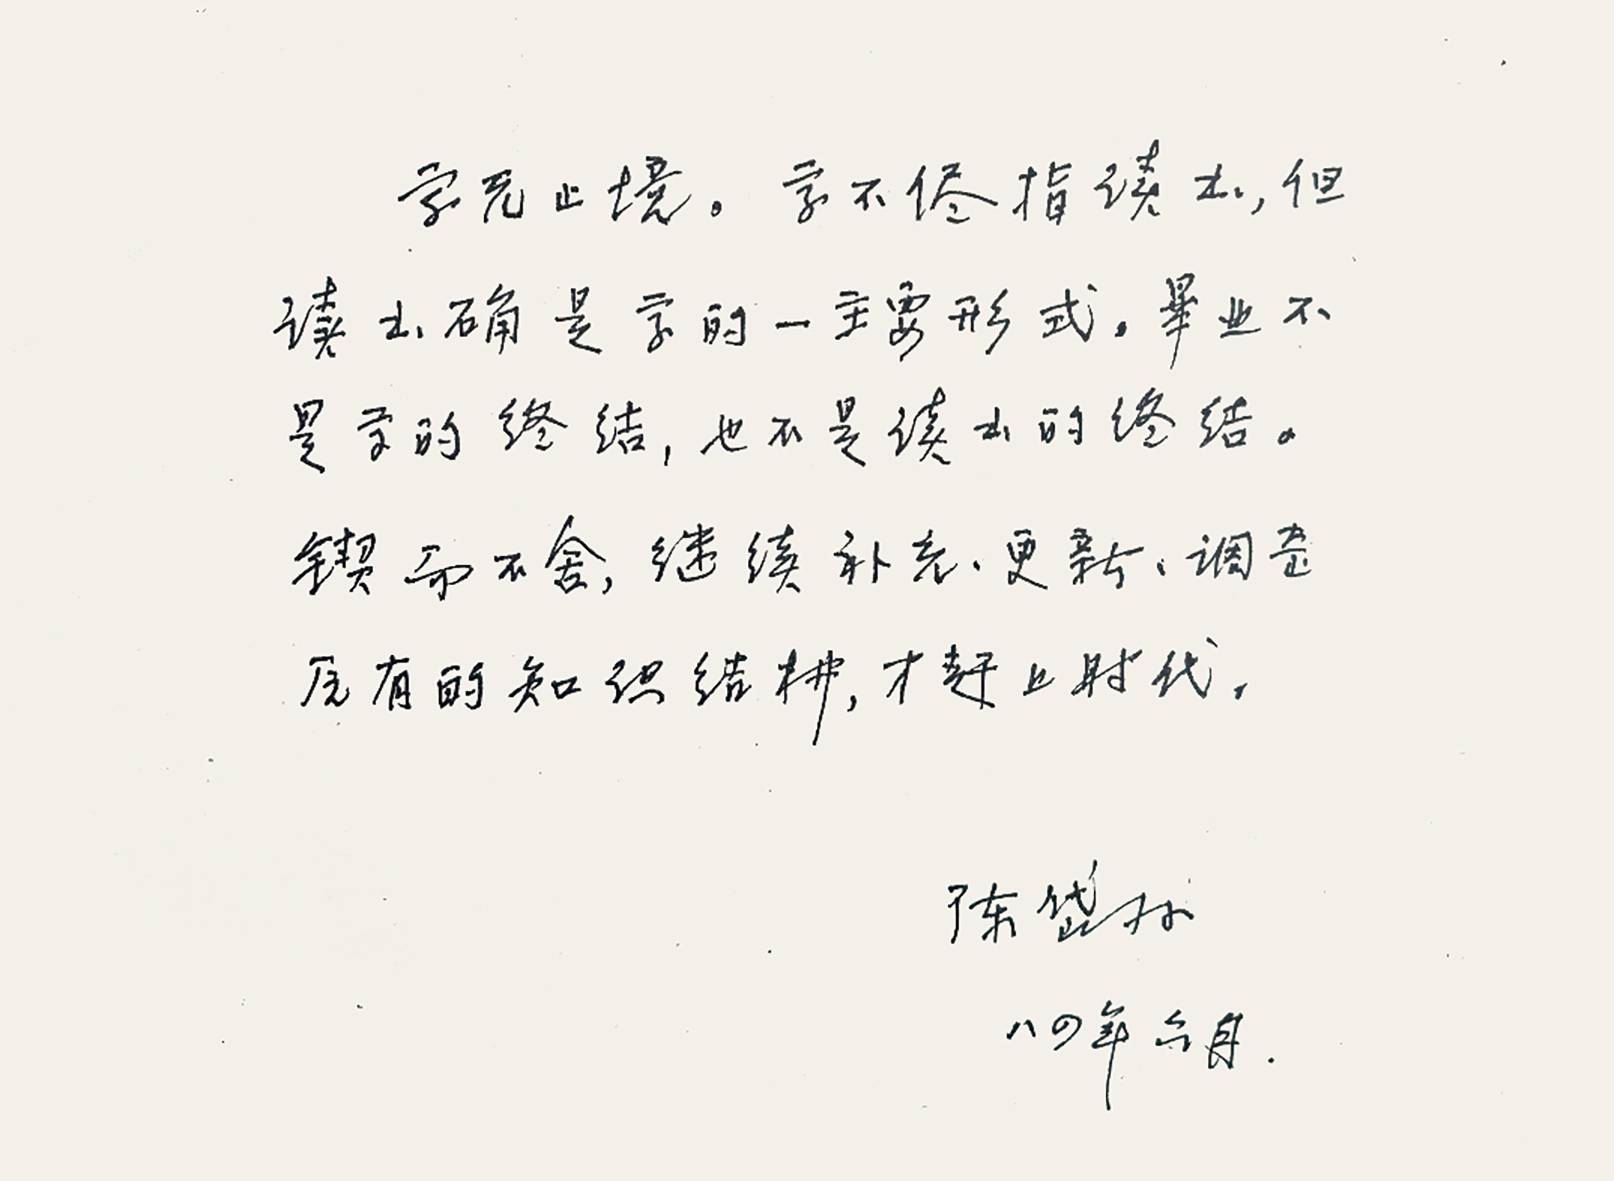 学无止境。学不侭指读书,但
读书确是学的一主要形式。畢业不
是学的终结,也不是读书的终结。
锲而不舍,继续补充、更新、调整
原有的知识结构,才赶上时代。
陈岱孙
八四年六月.